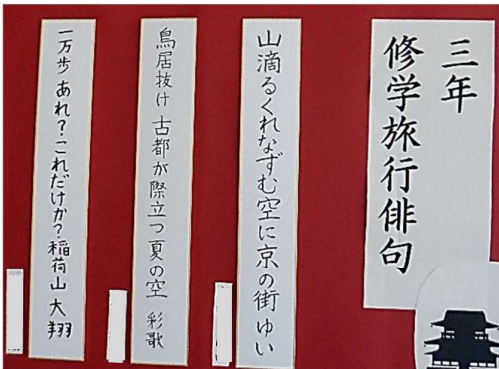 三年
修学旅行俳句
山滴るくれなずむ空に京の街ゆい
鳥居抜け 古都が際立つ 夏の空 彩歌
一万歩 あれ?これだけか?稲荷山 大翔